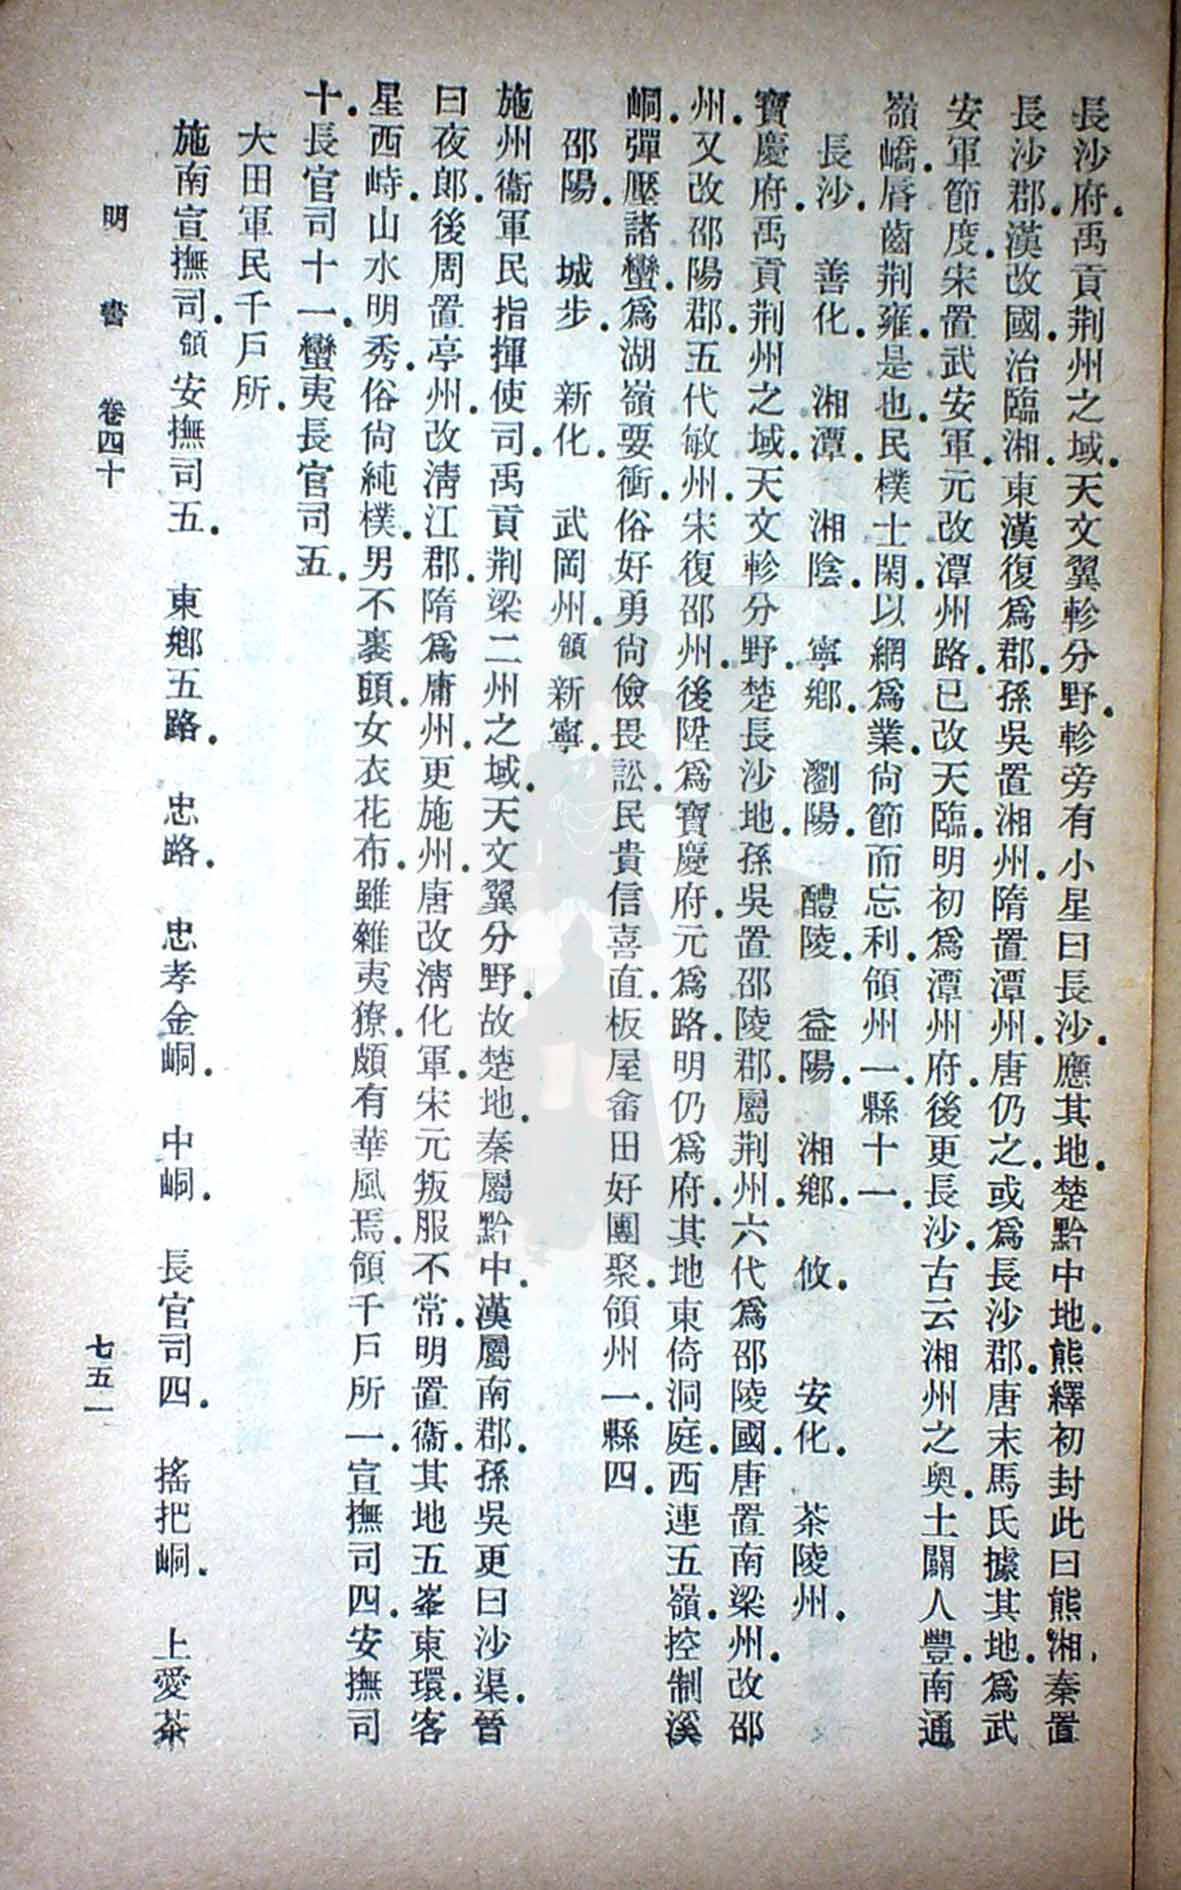 長沙府.禹貢荆州之域.天文翼軫分野.軫旁有小星曰長沙.應其地.楚黔中地.熊繹初封此曰熊湘.秦置
長沙郡.漢改國.治臨湘.東漢復爲郡.孫吳置湘州.隋置潭州.唐仍之.或爲長沙郡.唐末馬氏據其地.爲武
安軍節度.宋置武安軍.元改潭州路.已改天臨.明初爲潭州府.後更長沙.古云湘州之奧.土闢人豐.南通
嶺嶠.脣齒荆雍.是也.民樸士閑.以網爲業.尙節而忘利.領州一.縣十一.
長沙.　善化.　湘潭.　湘陰.　寧鄉.　瀏陽.　醴陵.　益陽.　湘鄉.　攸.　安化.　茶陵州.
寶慶府.禹貢荆州之域.天文軫分野.楚長沙地.孫吳置邵陵郡.屬荆州.六代爲邵陵國.唐置南梁州.改邵
州.又改邵陽郡.五代敏州.宋復邵州.後陞爲寶慶府.元爲路.明仍爲府.其地東倚洞庭.西連五嶺.控制溪
峒.彈壓諸蠻.爲湖嶺要衝.俗好勇尙儉畏訟.民貴信喜直.板屋畬田好團聚.領州一.縣四.
邵陽.　城步.　新化.　武岡州.領新寧.
施州衞軍民指揮使司.禹貢荆梁二州之域.天文翼分野.故楚地.秦屬黔中.漢屬南郡.孫吳更曰沙渠.晉
曰夜郎.後周置亭州.改淸江郡.隋爲庸州.更施州.唐改淸化軍.宋元叛服不常.明置衞.其地五峯東環.客
星西峙.山水明秀.俗尙純樸.男不裹頭.女衣花布.雖雜夷獠.頗有華風焉.領千戶所一.宣撫司四.安撫司
十.長官司十一.蠻夷長官司五.
大田軍民千戶所.
施南宣撫司.領安撫司五.　東鄉五路.　忠路.　忠孝金峒.　中峒.　長官司四.　搖把峒.　上愛茶
明　書　卷四十　七五一